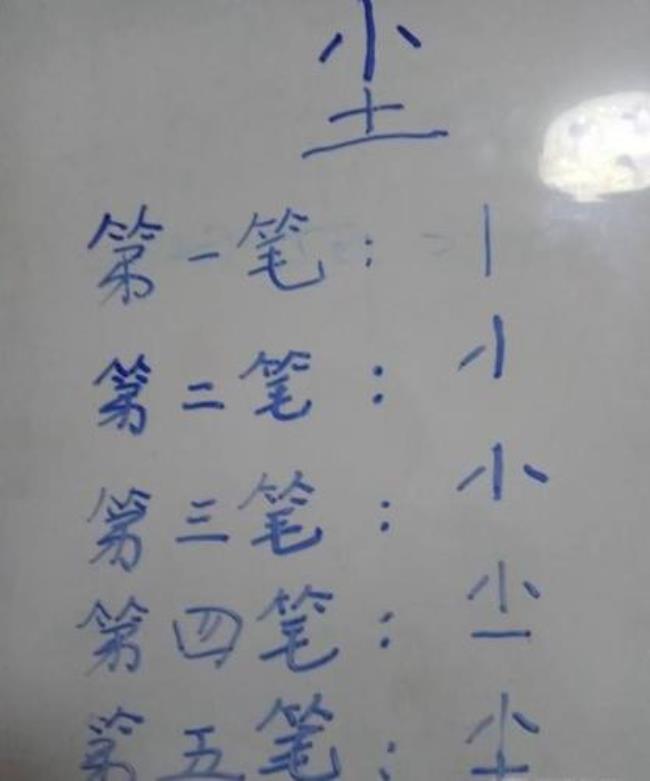 尘
第一笔：丨
第二笔：
第三笔：小
第四笔：
第五笔：